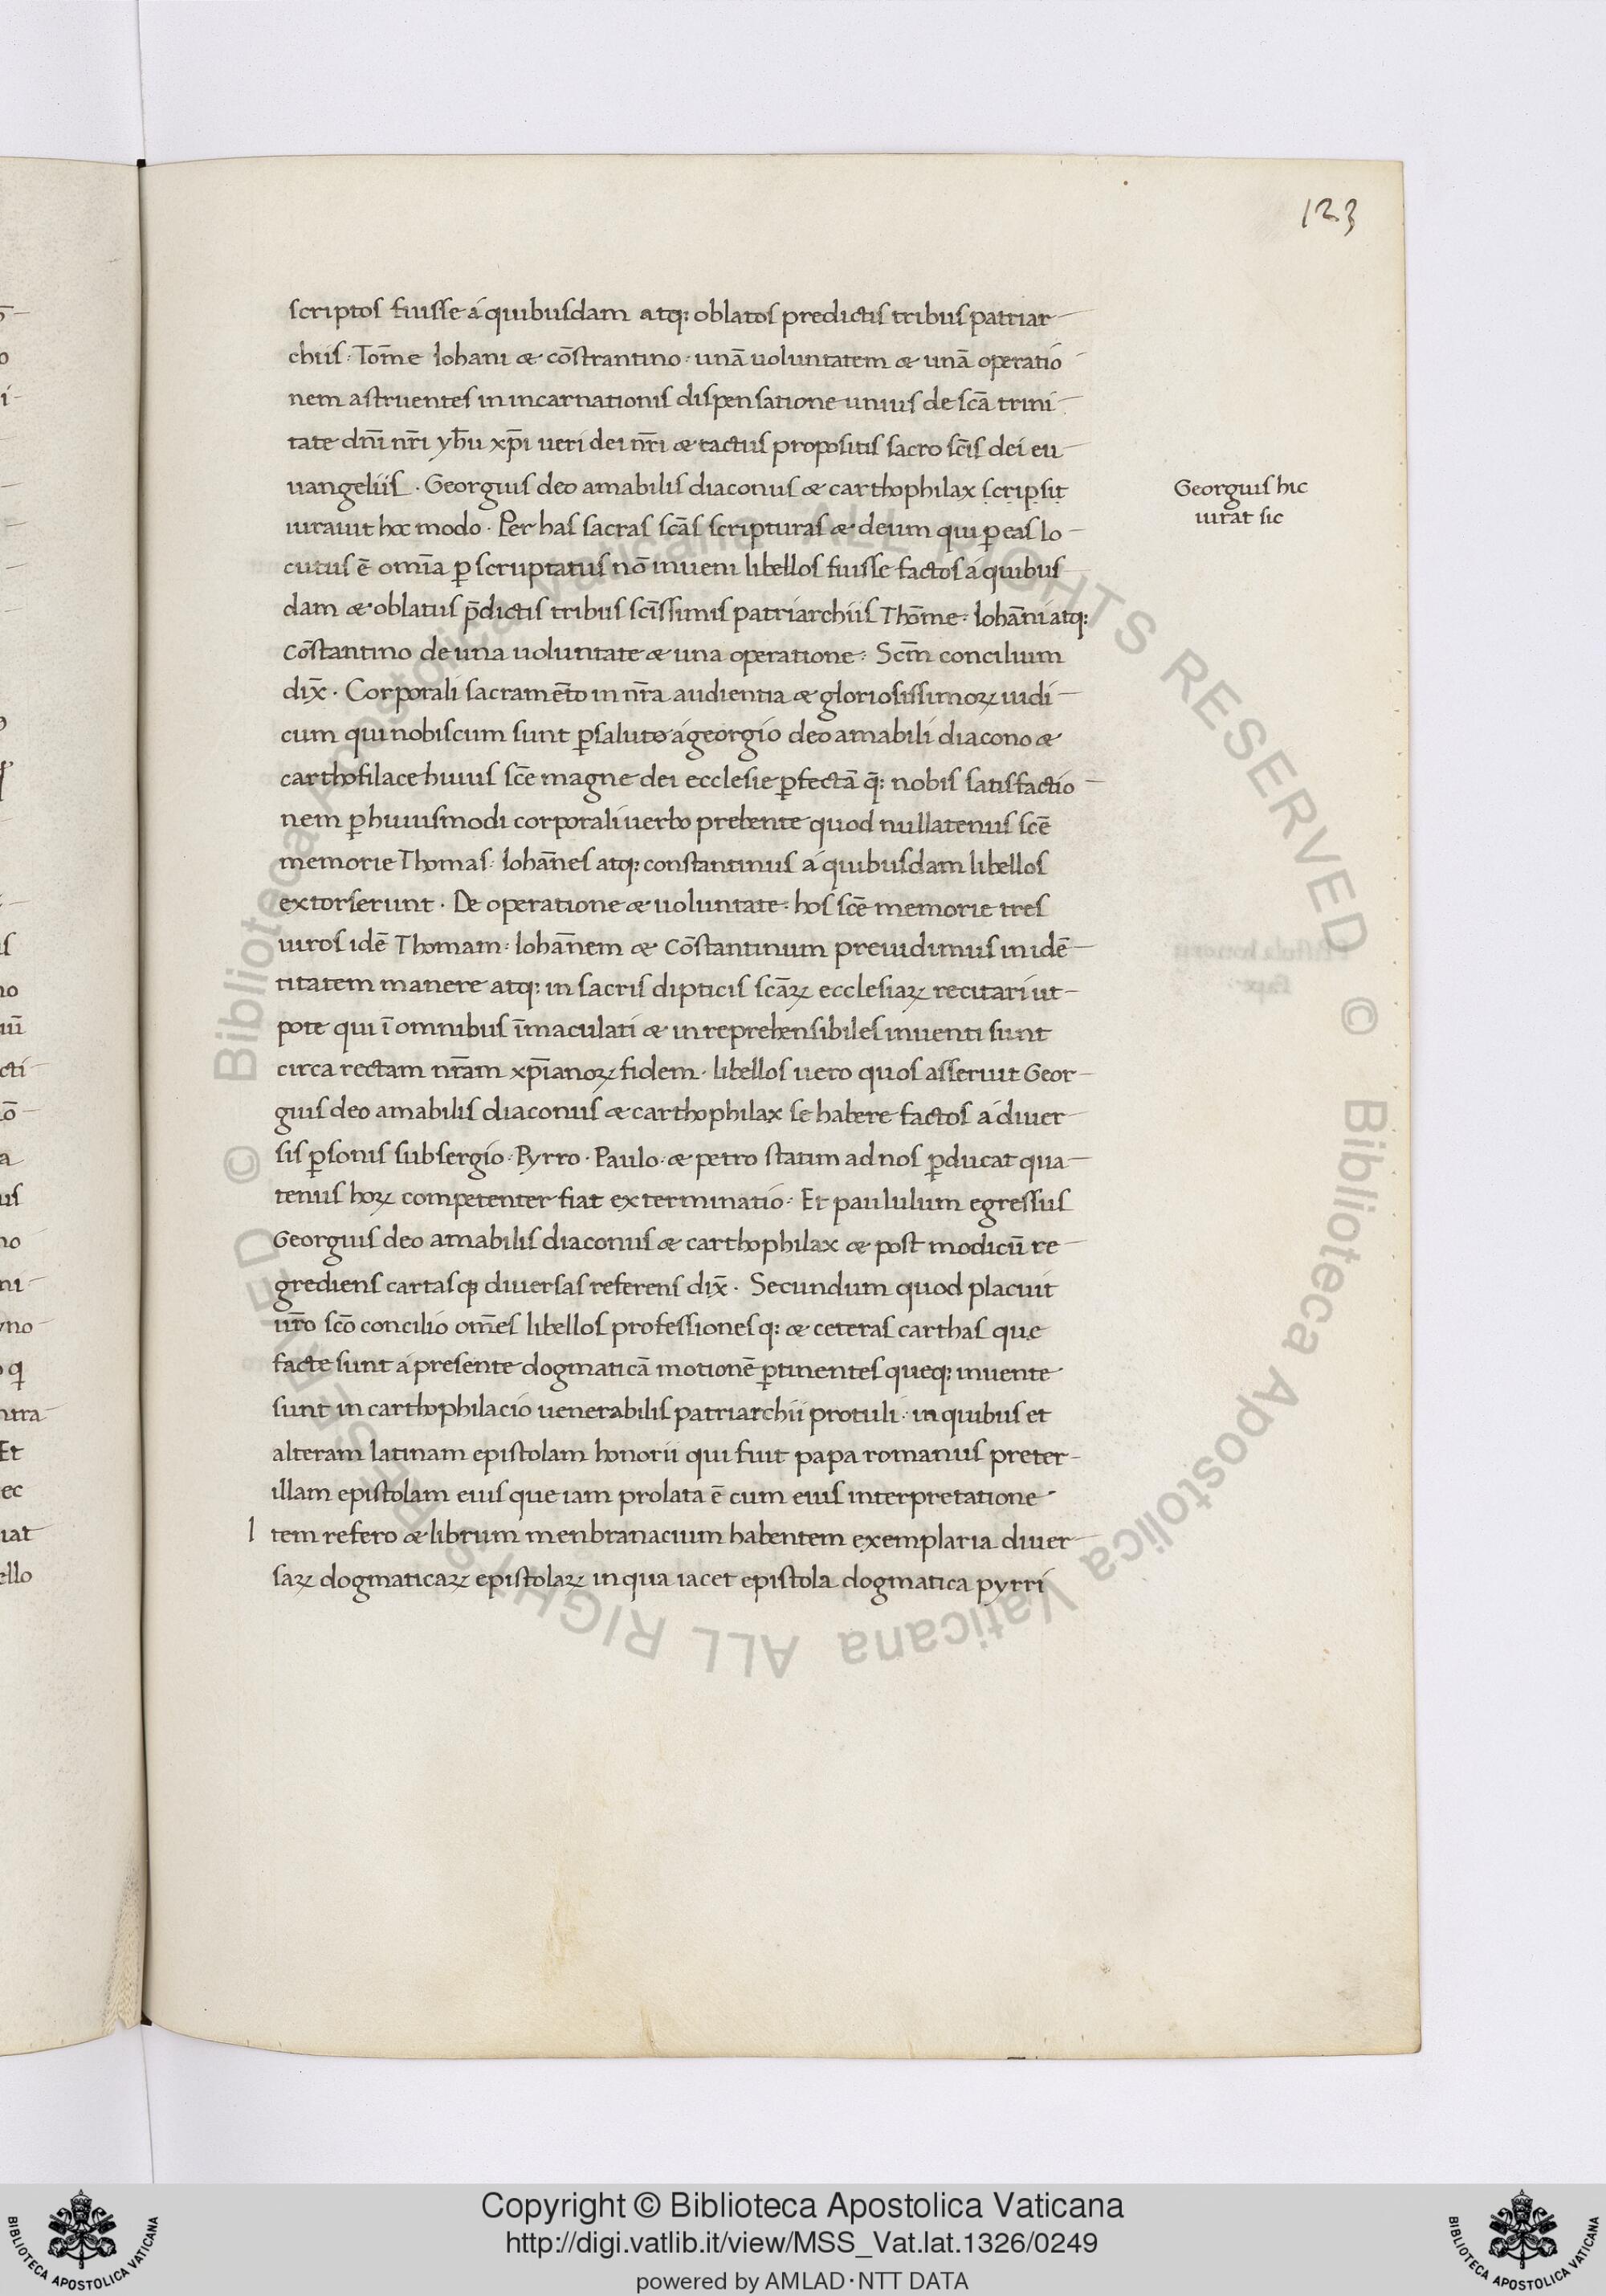 123
scriptos fuisse á quibusdam atq: oblatos predictis tribus patriar-
chiis · Tom̄e Iohani & cōstrantino · unā uoluntatem & unā operatio-
nem astruentes in incarnationis dispensatione unius de scā trini-
tate dn̄i nr̄i yh̄u xp̄i ueri dei nr̄i & tactus propositis sacro scīs dei eu-
uangeliis · Georgius deo amabilis diaconus & carthophilax scripsit
iurauit hoc modo · Per has sacras scās scripturas & deum qui ꝑ eas lo-
cutus ē omīa ꝑ scruptatus nō inueni libellos fuisse factos á quibus
dam & oblatus p̄dictis tribus scīssimis patriarchiis Thōme · Iohāni atq:
Cōstantino de una uoluntate & una operatione · Scm̄ concilium
dix̄ · Corporali sacramēto in nr̄a audientia & gloriosissimoꝝ iudi-
cum qui nobiscum sunt ꝑsaluto á georgio deo amabili diacono &
carthofilace huius scē magne dei ecclesie ꝑfectā q̄: nobis satisfactio-
nem ꝑ huiusmodi corporali uerbo prebente quod nullatenus scē
memorie Thomas · Iohan̄es atq: constantinus á quibusdam libellos
extorserunt · De operatione & uoluntate · hos scē memorie tres
uiros idē Thomam · Iohan̄nem & Cōstantinum preuidimus in idē-
titatem manere atq: in sacris dipticis scāꝝ ecclesiaꝝ recitari ut-
pote qui ī omnibus īmaculati & inreprehensibiles inuenti sunt
circa rectam nr̄am xp̄ianoꝝ fidem · libellos uero quos asseruit Geor-
gius deo amabilis diaconus & carthophilax se habere factos á diuer-
sis ꝑsonis sub sergio · Pyrro · Paulo · & petro statim ad nos ꝑducat qua-
tenus hoꝝ competenter fiat exterminatio · Et paululum egressus
Georgius deo amabilis diaconus & carthophilax & post modicū re-
grediens cartasq; diuersas referens dix̄ · Secundum quod placuit
ur̄o scō concilio om̄es libellos professionesq: & ceteras carthas que
facte sunt á presente dogmaticā motionē ꝑtinentes queq: inuente
sunt in carthophilacio uenerabilis patriarchii protuli · in quibus et
alteram latinam epistolam honorii qui fuit papa romanus preter-
illam epistolam eius que iam prolata ē cum eius interpretatione ·
I tem refero & librum menbranacium habentem exemplaria diuer-
saꝝ dogmaticaꝝ epistolaꝝ in qua iacet epistola dogmatica pyrri
Georgius hic
iurat sic
Copyright © Biblioteca Apostolica Vaticana
http://digi.vatlib.it/view/MSS_Vat.lat.1326/0249
powered by AMLAD·NTT DATA
BIBLIOTECA APOSTOLICA VATICANA
BIBLIOTECA APOSTOLICA VATICANA
© Biblioteca Apostolica Vaticana ALL RIGHTS RESERVED © Biblioteca Apostolica Vaticana ALL RIGHTS RESERVED